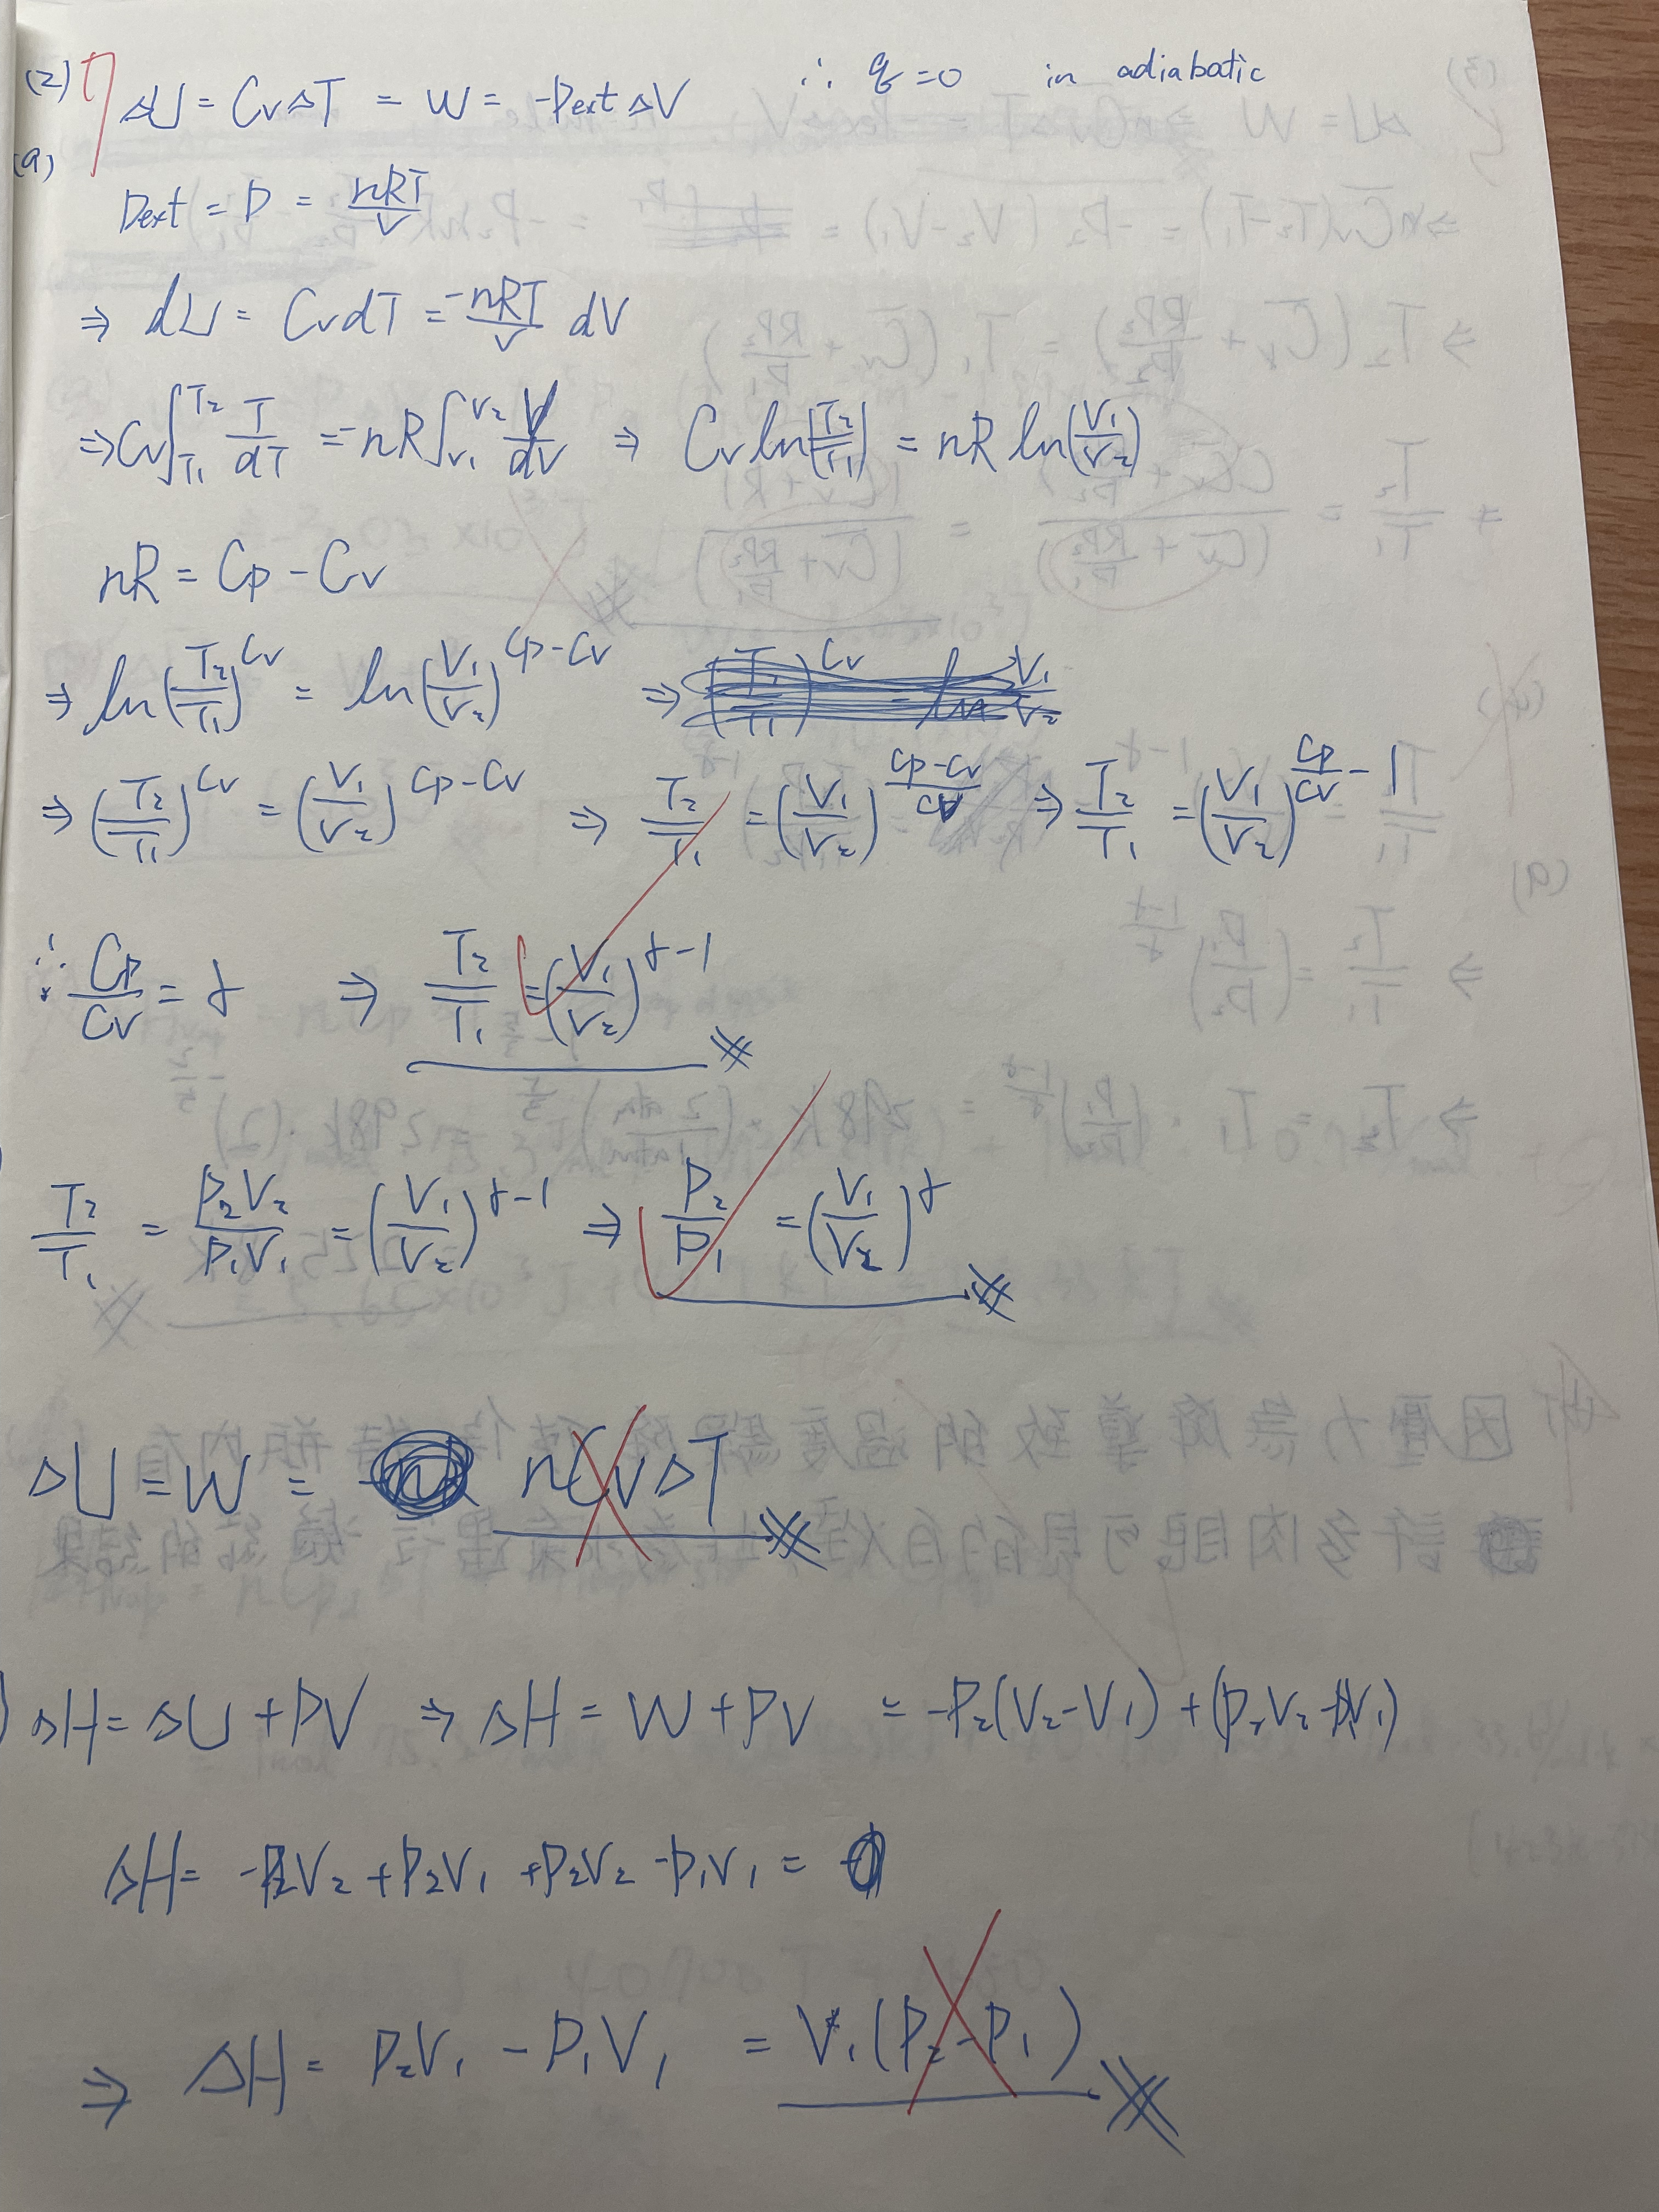 (2) ΔU = CvΔT = W = -Pext ΔV ∴ q = 0 in adiabatic
(a)
Pext = P = nRT/V
⇒ dU = CvdT = -nRT/V dV
⇒ Cv∫_{T1}^{T2} T/dT = -nR∫_{V1}^{V2} V/dV ⇒ Cv ln|T2/T1| = nR ln(V1/V2)
nR = Cp - Cv
⇒ ln(T2/T1)^{Cv} = ln(V1/V2)^{Cp-Cv} ⇒
⇒ (T2/T1)^{Cv} = (V1/V2)^{Cp-Cv} ⇒ T2/T1 = (V1/V2)^{(Cp-Cv)/Cv} ⇒ T2/T1 = (V1/V2)^{Cp/Cv - 1}
∵ Cp/Cv = γ ⇒ T2/T1 = (V1/V2)^{γ-1}
T2/T1 = P2V2/P1V1 = (V1/V2)^{γ-1} ⇒ P2/P1 = (V1/V2)^γ
ΔU = W = nCvΔT
) ΔH = ΔU + PV ⇒ ΔH = W + PV = -P2(V2-V1) + (P2V2-P1V1)
ΔH = -P2V2 + P2V1 + P2V2 - P1V1 =
⇒ ΔH = P2V1 - P1V1 = V1(P2-P1)